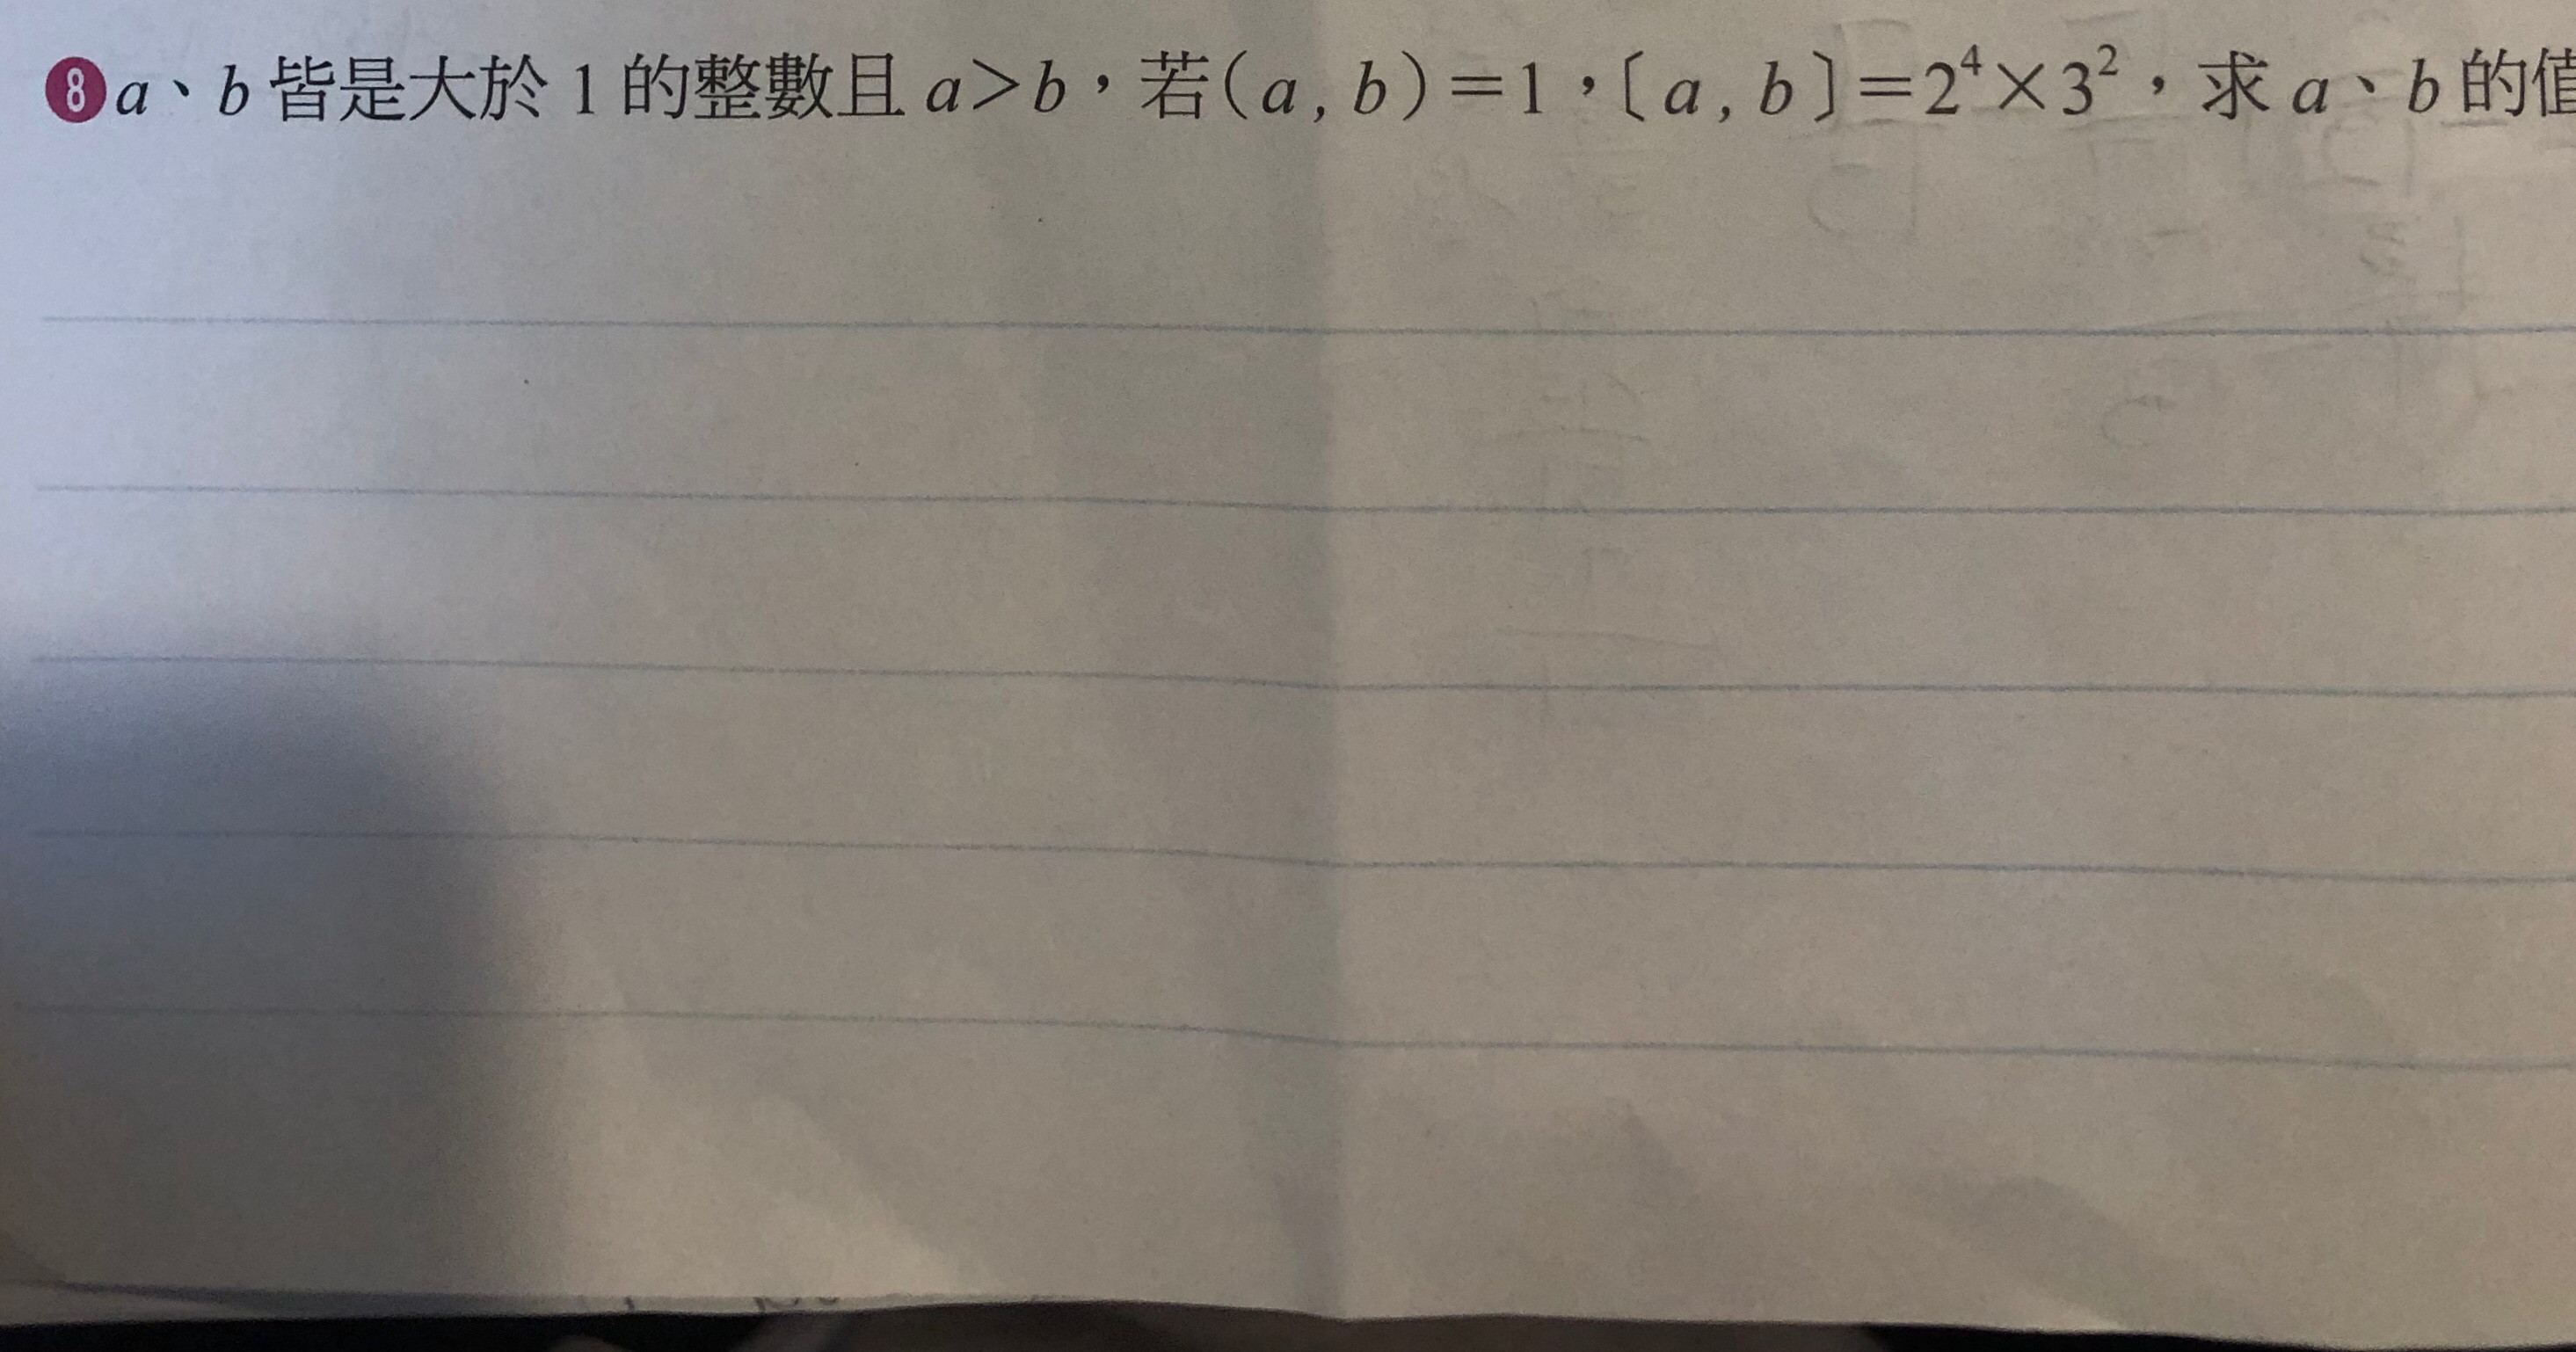 8 a、b 皆是大於 1 的整數且 a＞b，若(a , b)＝1，〔a , b〕＝2⁴×3²，求 a、b 的值